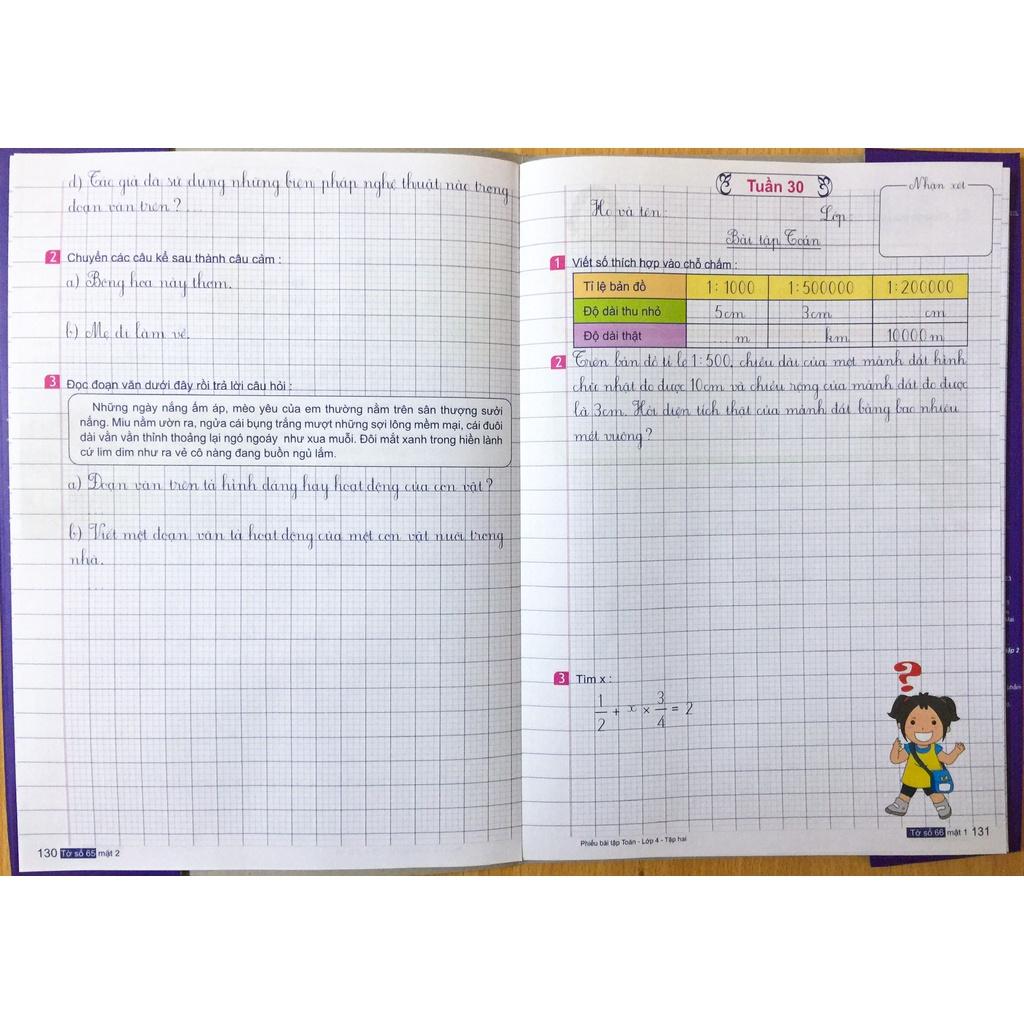 d) Tác giả đã sử dụng những biện pháp nghệ thuật nào trong
đoạn văn trên ? ...
2 Chuyển các câu kể sau thành câu cảm :
a) Bông hoa này thơm.
b) Mẹ đi làm về.
3 Đọc đoạn văn dưới đây rồi trả lời câu hỏi :
Những ngày nắng ấm áp, mèo yêu của em thường nằm trên sân thượng sưởi
nắng. Miu nằm ườn ra, ngửa cái bụng trắng mượt những sợi lông mềm mại, cái đuôi
dài vằn vằn thỉnh thoảng lại ngó ngoáy như xua muỗi. Đôi mắt xanh trong hiền lành
cứ lim dim như ra vẻ cô nàng đang buồn ngủ lắm.
a) Đoạn văn trên tả hình dáng hay hoạt động của con vật ?
...
b) Viết một đoạn văn tả hoạt động của một con vật nuôi trong
nhà.
...
130 Tờ số 65 mặt 2
Tuần 30
Nhận xét
Họ và tên :
Lớp :
Bài tập Toán
1 Viết số thích hợp vào chỗ chấm :
Tỉ lệ bản đồ 1 : 1000 1 : 500000 1 : 200000
Độ dài thu nhỏ 5cm 3cm ... cm
Độ dài thật ... m ... km 10000 m
2 Trên bản đồ tỉ lệ 1 : 500, chiều dài của một mảnh đất hình
chữ nhật đo được 10cm và chiều rộng của mảnh đất đo được
là 3cm. Hỏi diện tích thật của mảnh đất bằng bao nhiêu
mét vuông ?
3 Tìm x :
1/2 + x × 3/4 = 2
?
Phiếu bài tập Toán - Lớp 4 - Tập hai
Tờ số 66 mặt 1 131